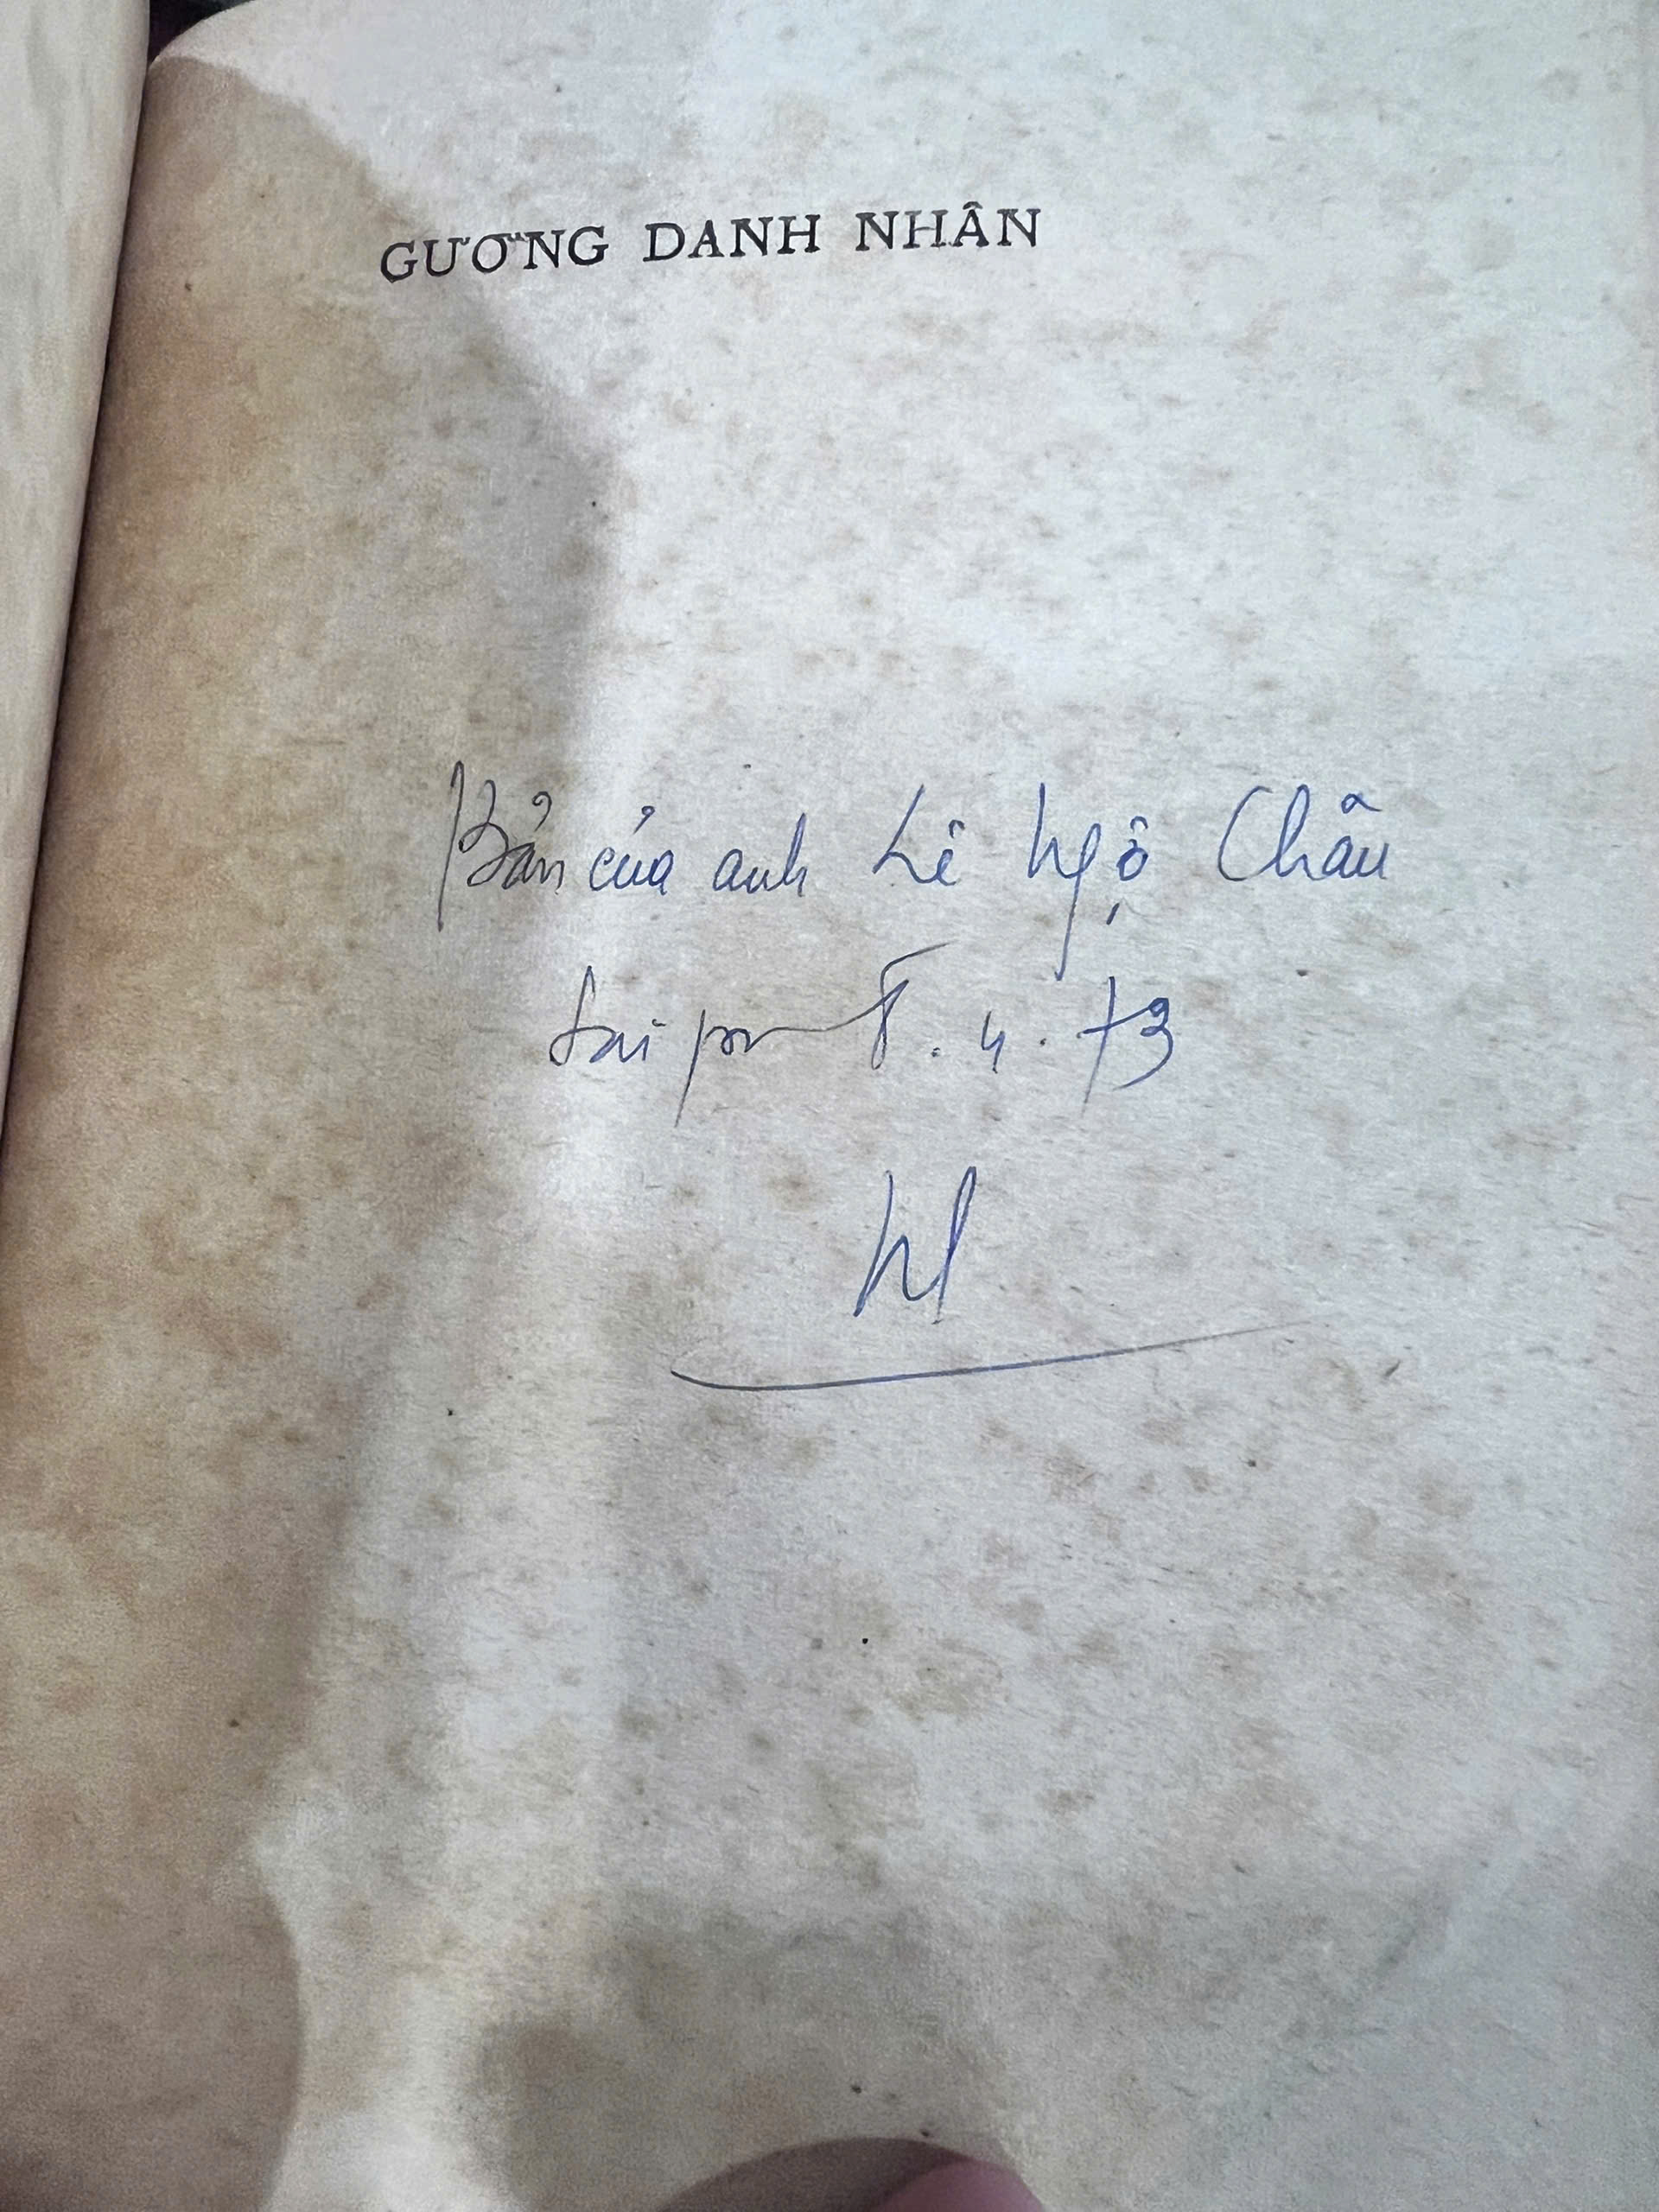 GƯƠNG DANH NHÂN
Bản của anh Lê Ngộ Châu
Saigon 8.4.73